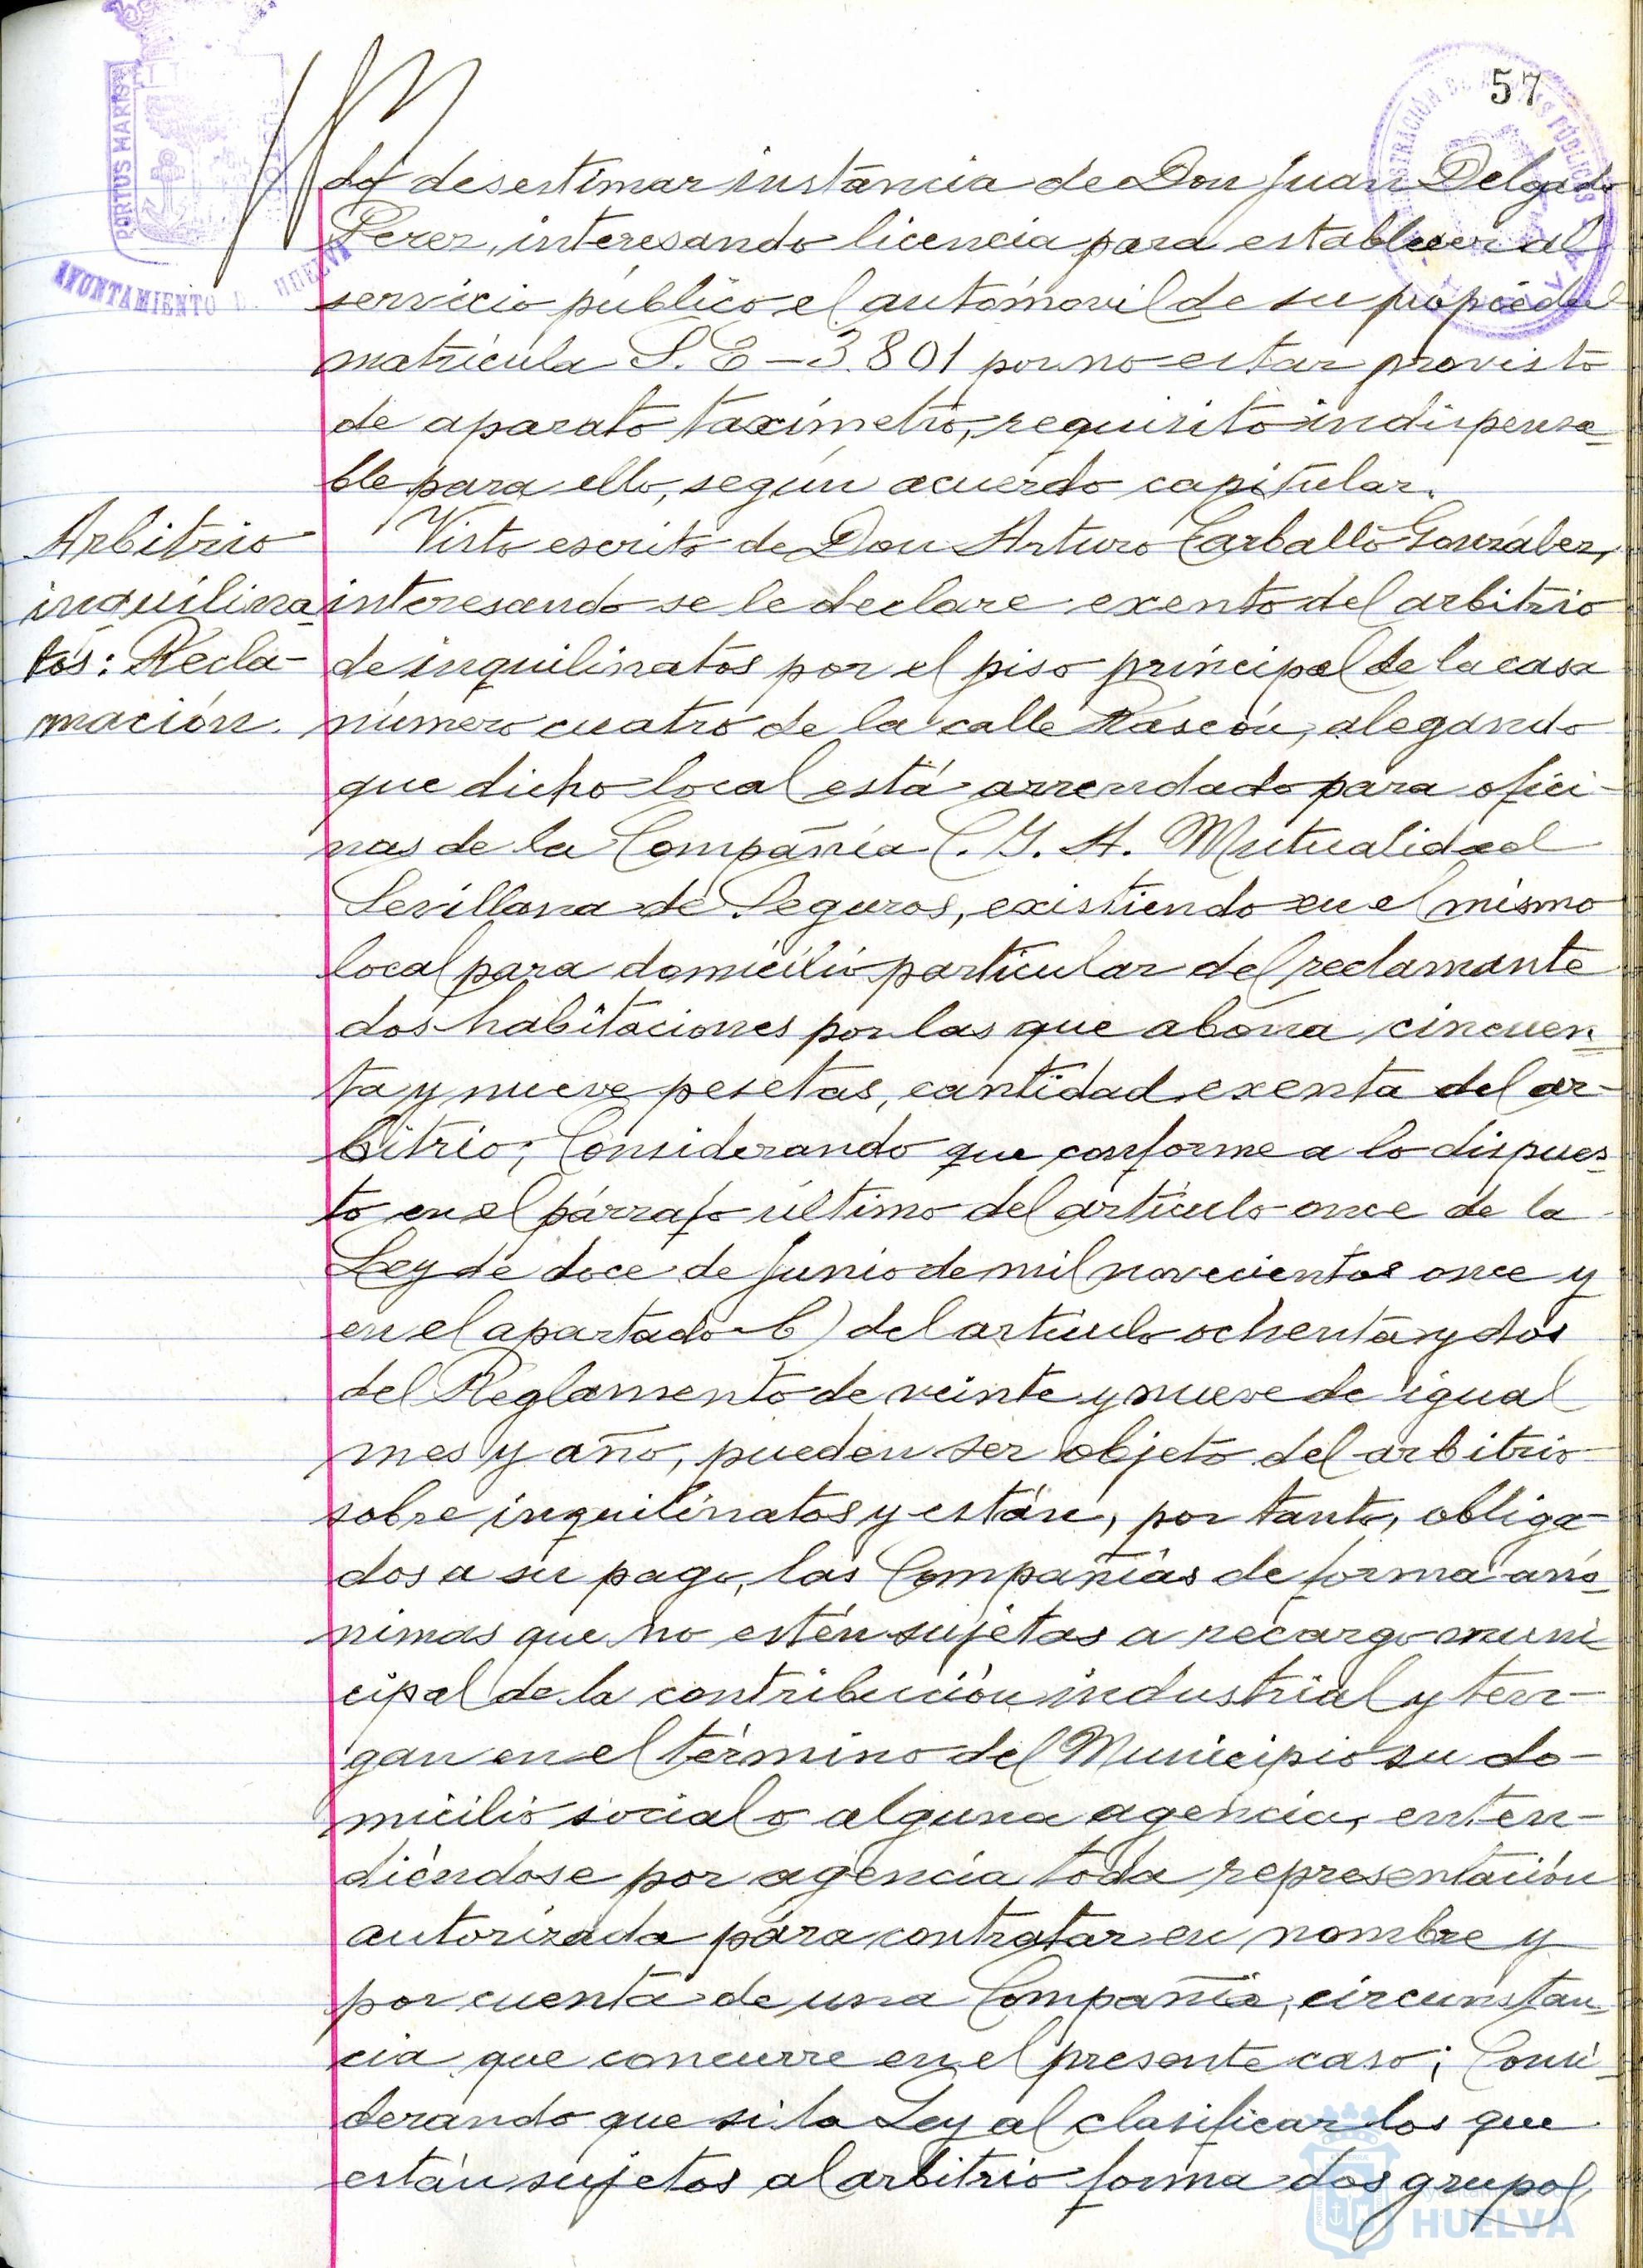 57
PORTUS MARIS
AYUNTAMIENTO DE HUELVA
dó desestimar instancia de Don Juan Delgado
Perez, interesando licencia para establecer al
servicio público el automovil de su propiedad
matrícula S.E-3.801 por no estar provisto
de aparato taxímetro, requisito indispensa-
ble para ello, según acuerdo capitular.
Arbitrio
inquilina-
tos: Recla-
mación.
Visto escrito de Don Arturo Carballo González,
interesando se le declare exento del arbitrio
de inquilinatos por el piso principal de la casa
número cuatro de la calle Rascón, alegando
que dicho local está arrendado para ofici-
nas de la Compañía C.G.A. Mutualidad
Sevillana de Seguros, existiendo en el mismo
local para domicilio particular del reclamante
dos habitaciones por las que abona cincuen-
ta y nueve pesetas, cantidad exenta del ar-
bitrio; Considerando que conforme a lo dispues-
to en el párrafo último del artículo once de la
Ley de doce de Junio de mil novecientos once y
en el apartado b) del artículo ochenta y dos
del Reglamento de veinte y nueve de igual
mes y año, pueden ser objeto del arbitrio
sobre inquilinatos y están, por tanto, obliga-
dos a su pago, las Compañías de forma anó-
nimas que no estén sujetas a recargo muni-
cipal de la contribución industrial y ten-
gan en el término del Municipio su do-
micilio social o alguna agencia, enten-
diéndose por agencia toda representación
autorizada para contratar en nombre y
por cuenta de una Compañía, circunstan-
cia que concurre en el presente caso; Consi-
derando que si la Ley al clasificar los que
están sujetos al arbitrio forma dos grupos,
HUELVA